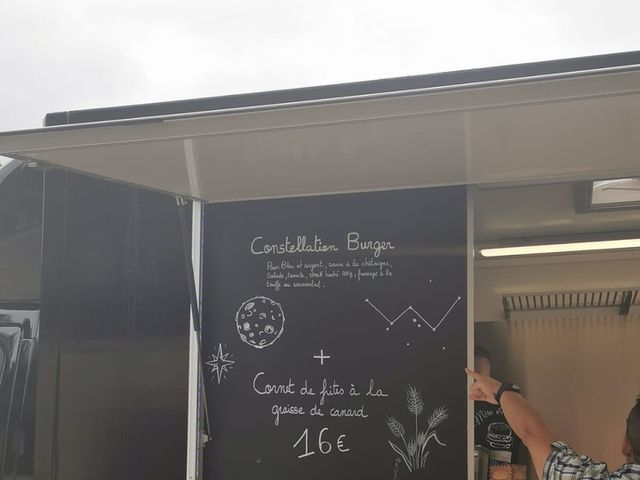 Constellation Burger
Pain Bleu et argent, sauce à la châtaigne,
Salade, tomate, steak haché 100g, fromage à la
truffe ou emmental.
+
Cornet de frites à la
graisse de canard
16€